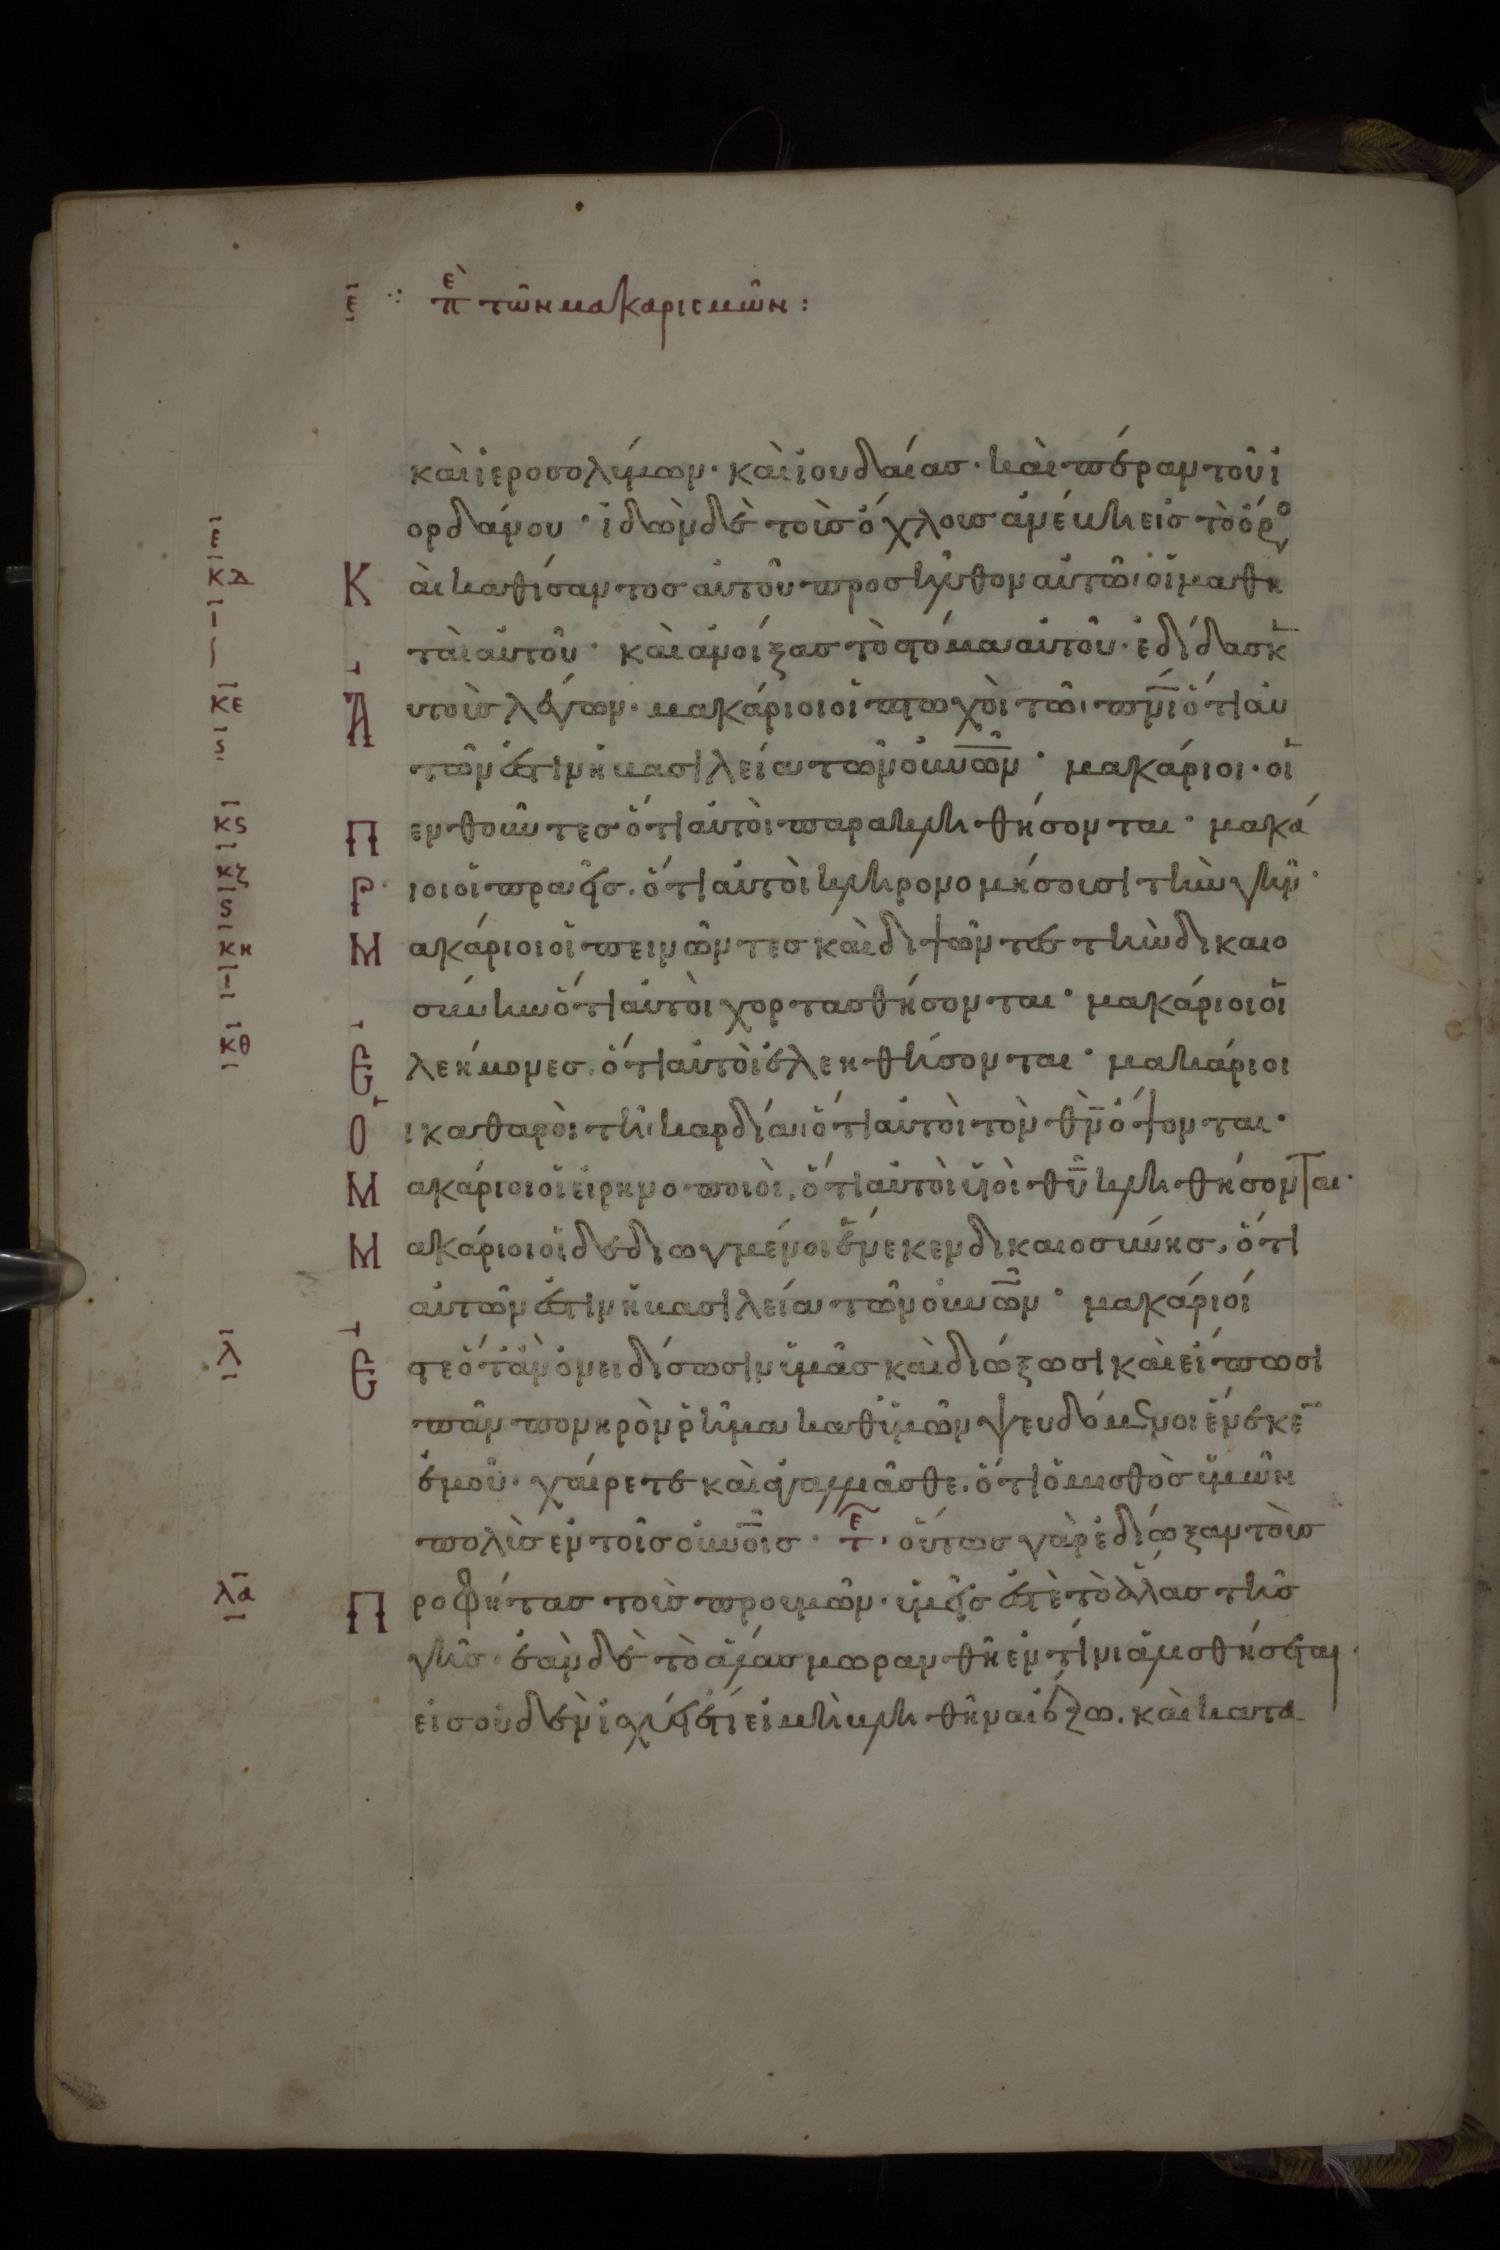 ε̄ ⁘ πὲ τῶν μακαρισμῶν :
καὶ ἱεροσολύμων · καὶ ἰουδαίας · καὶ πέραν τοῦ ἰ
ορδάνου · ἰδὼν δὲ τοὺς ὄχλους ἀνέβη εἰς τὸ ὄρο
ε̄
κδ Καὶ καθίσαντος αὐτοῦ προσῆλθον αὐτῶ οἱ μαθη
ῑ
ταὶ αὐτοῦ · καὶ ἀνοίξας τὸ στόμα αὐτοῦ · ἐδίδασκ
κε Αυτοὺς λέγων · μακάριοι οἱ πτωχοὶ τῶ πνι ὅτι αὐ
ϛ
τῶν ἐστιν ἡ βασιλεία τῶν οὐνῶν · μακάριοι · οἱ
κϛ Πενθοῦντες ὅτι αὐτοὶ παρακληθήσονται · μακά
κζ Ριοι οἱ πραεῖς · ὅτι αὐτοὶ κληρονομήσουσι τὴν γῆν ·
ϛ
κη Μακάριοι οἱ πεινῶντες καὶ διψῶντες τὴν δικαιο
ῑ
σύνην ὅτι αὐτοὶ χορτασθήσονται · μακάριοι οἱ
κθ Ελεήμονες · ὅτι αὐτοὶ ἐλεηθήσονται · μακάριοι
Οι καθαροὶ τῆ καρδία ὅτι αὐτοὶ τὸν θν ὄψονται ·
Μακάριοι οἱ εἰρηνοποιοὶ, ὅτι αὐτοὶ υἱοὶ θυ κληθήσονται ·
Μακάριοι οἱ δεδιωγμένοι ἕνεκεν δικαιοσύνης, ὅτι
αὐτῶν ἐστιν ἡ βασιλεία τῶν οὐνῶν · μακάριοί
λ Εστε ὅταν ὀνειδίσωσιν ὑμᾶς καὶ διώξωσι καὶ εἴπωσι
πᾶν πονηρὸν ῥῆμα καθ ὑμῶν ψευδόμενοι ἕνεκε
ἐμοῦ · χαίρετε καὶ ἀγαλλιᾶσθε · ὅτι ὁ μισθὸς ὑμῶν
πολὺς ἐν τοῖς οὐνοῖς · τε · οὕτως γὰρ ἐδίωξαν τοὺς
λα Προφήτας τοὺς πρὸ ὑμῶν · ὑμεῖς ἐστὲ τὸ ἅλας τῆς
γῆς · ἐὰν δὲ τὸ ἅλας μωρανθῆ ἐν τίνι ἁλισθήσεται ·
εἰς οὐδὲν ἰσχύει ἔτι εἰ μὴ βληθῆναι ἔξω · καὶ κατα